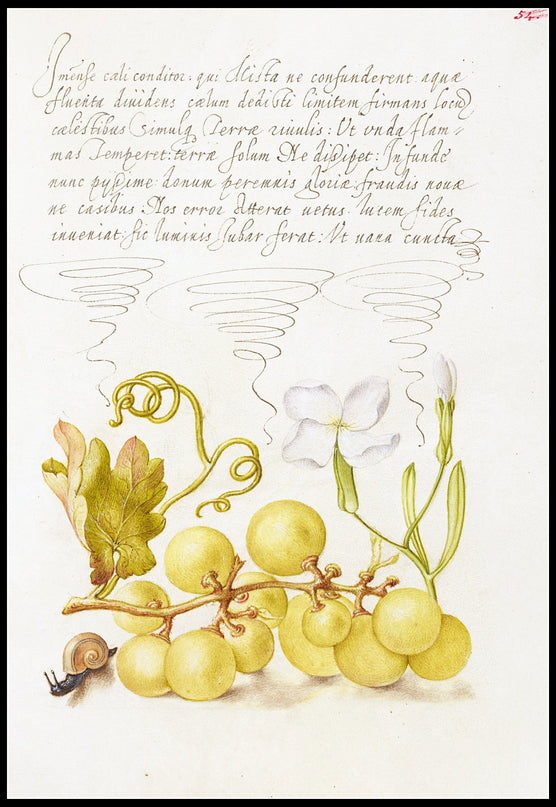 52
Imense cæli conditor: qui Mista ne confunderent aquæ
fluenta diuidens cælum dedisti limitem firmans locũ
cælestibus Simulq. Terræ riuulis: Ut vnda flam-
mas Temperet: terræ solum Ne disipet: Infunde
nunc pijsime: donum peremnis gloriæ: fraudis nouæ
ne casibus Nos error Atterat uetus. lucem fides
inueniat: sic luminis Jubar ferat: Ut uana cuncta